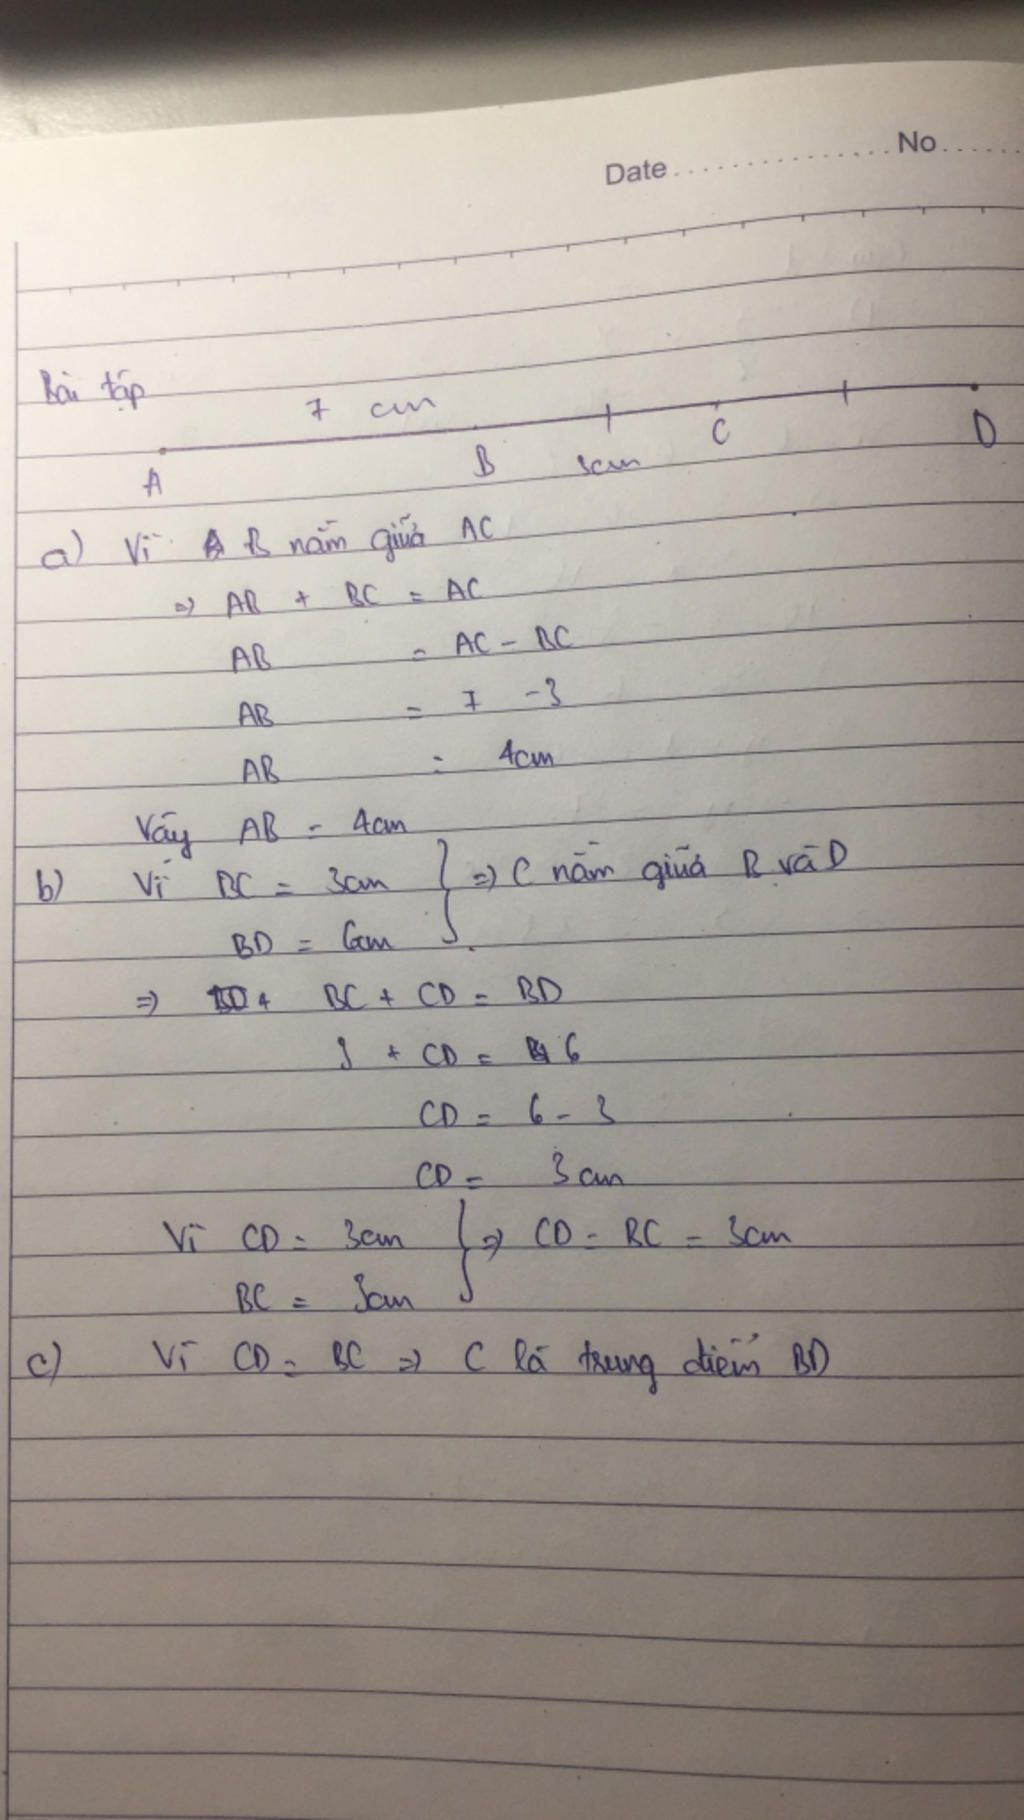 Date ................ No ......
Bài tập
7 cm
A B 3cm C D
a) Vì B nằm giữa AC
=> AB + BC = AC
AB = AC - BC
AB = 7 - 3
AB = 4cm
Vậy AB = 4cm
b) Vì BC = 3cm } => C nằm giữa B và D
BD = 6cm
=> BC + CD = BD
3 + CD = 6
CD = 6 - 3
CD = 3cm
Vì CD = 3cm } => CD = BC = 3cm
BC = 3cm
c) Vì CD = BC => C là trung điểm BD